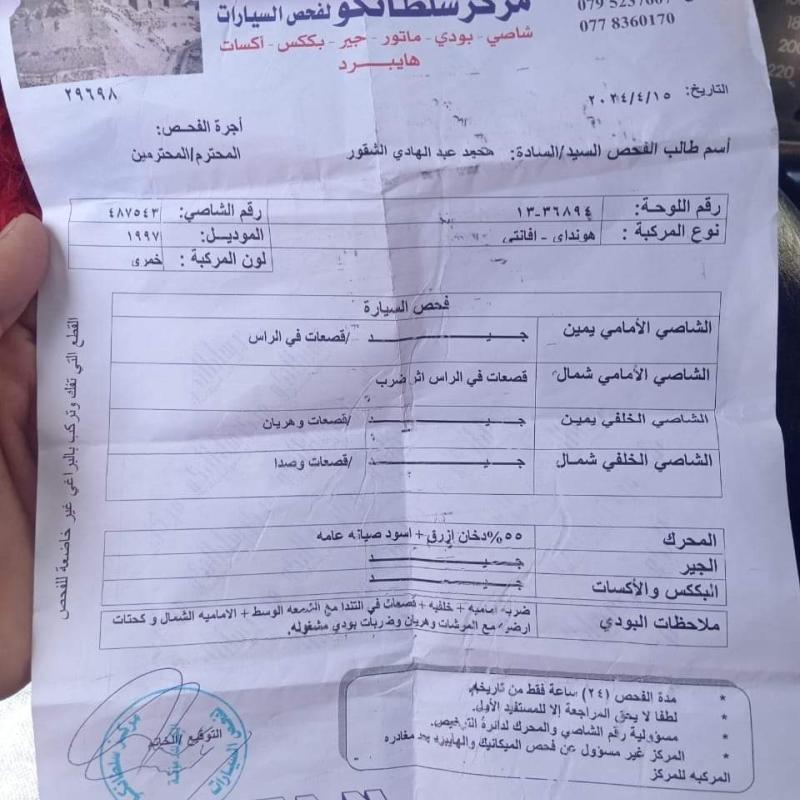 مركز سلطانكو لفحص السيارات
شاصي - بودي - ماتور - جير - بككس - أكسات
هايبرد
077 8360170
التاريخ: ٢٠٢٤/٤/١٥
٢٩٦٩٨
أجرة الفحص:
أسم طالب الفحص السيد/السادة: محمد عبد الهادي الشقور
المحترم/المحترمين
رقم اللوحة: ١٣-٣٦٨٩٤
رقم الشاصي: ٤٨٧٥٤٣
نوع المركبة : هونداي - افانتي
الموديل: ١٩٩٧
لون المركبة : خمري
فحص السيارة
الشاصي الأمامي يمين جيد /قصعات في الراس
الشاصي الأمامي شمال قصعات في الراس اثر ضرب
الشاصي الخلفي يمين جيد /قصعات وهريان
الشاصي الخلفي شمال جيد /قصعات وصدا
المحرك ٥٥% دخان ازرق + اسود صيانه عامه
الجير جيد
البككس والأكسات جيد
ملاحظات البودي ضربه اماميه + خلفيه + قصعات في التندا مع الشمعه الوسط + الاماميه الشمال و كحتات
ارضيه مع المرشات وهريان وضربات بودي مشغوله.
القطع التي تفك وتركب بالبراغي غير خاضعة للفحص
* مدة الفحص (٢٤) ساعة فقط من تاريخه.
* لطفا لا يحق المراجعة إلا للمستفيد الأول.
* مسؤولية رقم الشاصي والمحرك لدائرة الترخيص.
* المركز غير مسؤول عن فحص الميكانيك والهايبرد بعد مغادره
المركبه للمركز
التوقيع الختم